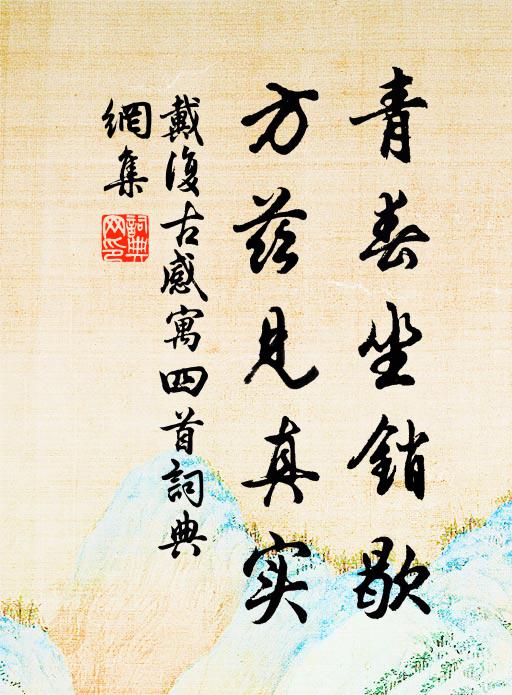 青春坐銷歇
方兹見真实
戴復古感寓四首詞典
網集
詞典网印